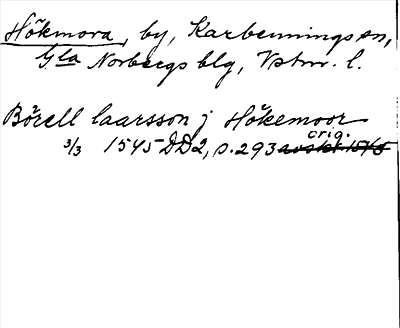 Hökmora, by, Karbennings sn,
Gla Norbergs blg, Vstm. l.
Börell Laarsson j Hökemoor
orig.
3/3 1545 DD2, s. 293 avskr. 1545